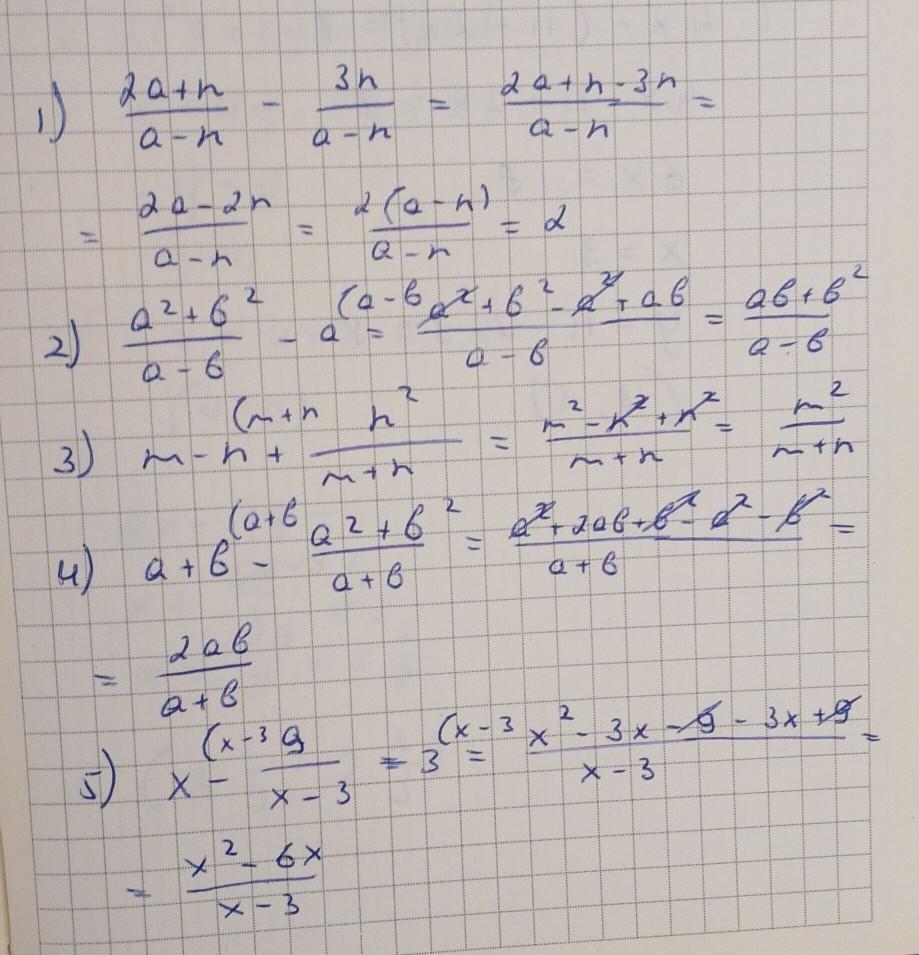 1) (2a+n)/(a-n) - 3n/(a-n) = (2a+n-3n)/(a-n) =
= (2a-2n)/(a-n) = 2(a-n)/(a-n) = 2
2) (a²+b²)/(a-b) - a^(a-b = (a²+b²-a²+ab)/(a-b) = (ab+b²)/(a-b)
3) m-n^(m+n + n²/(m+n) = (m²-n²+n²)/(m+n) = m²/(m+n)
4) a+b^(a+b - (a²+b²)/(a+b) = (a²+2ab+b²-a²-b²)/(a+b) =
= 2ab/(a+b)
5) x^(x-3 - 9/(x-3) - 3^(x-3 = (x²-3x-9-3x+9)/(x-3) =
= (x²-6x)/(x-3)